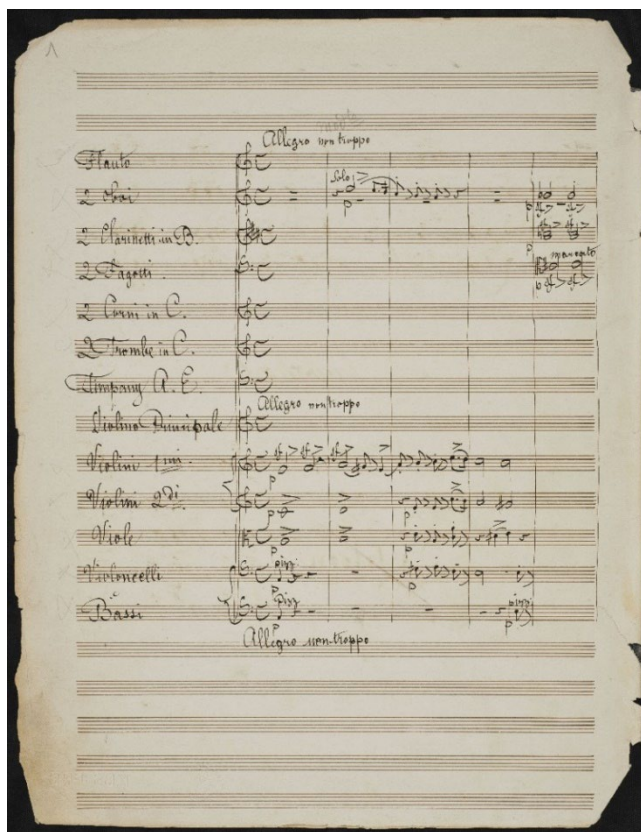 1
Allegro non troppo
Flauto
2 Oboi
Solo
p
2 Clarinetti in B.
p
2 Fagotti.
marcato
p
2 Corni in C.
2 Trombe in C.
Timpany A. E.
Allegro non troppo
Violino Principale
Violini 1mi
p
Violini 2di
p
p
Viole
p
p
Violoncelli
pizz
p
Bassi
pizz
pizz
p
p
Allegro non troppo